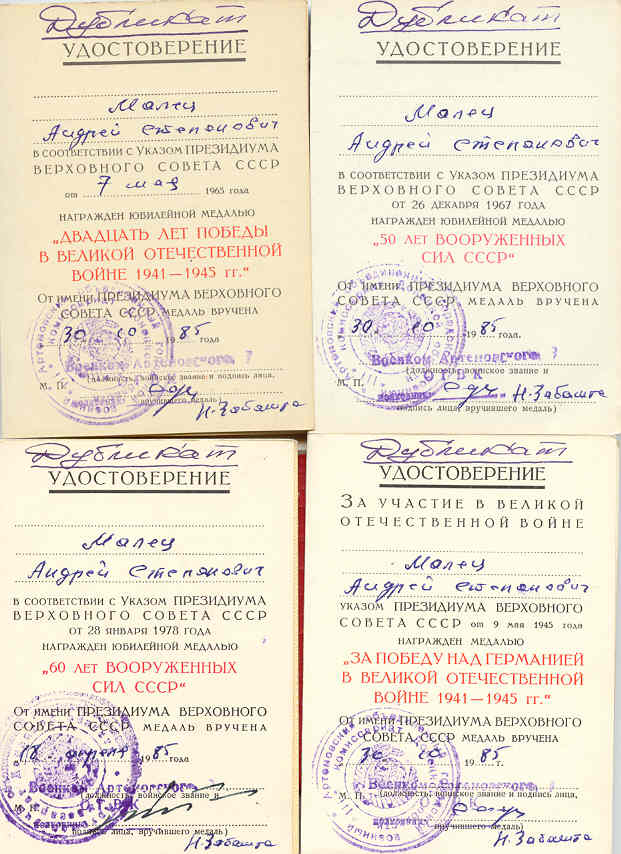 Дубликат
УДОСТОВЕРЕНИЕ
Малец
Андрей Степанович
в соответствии с Указом ПРЕЗИДИУМА
ВЕРХОВНОГО СОВЕТА СССР
от 7 мая 1965 года
НАГРАЖДЕН ЮБИЛЕЙНОЙ МЕДАЛЬЮ
„ДВАДЦАТЬ ЛЕТ ПОБЕДЫ
В ВЕЛИКОЙ ОТЕЧЕСТВЕННОЙ
ВОЙНЕ 1941—1945 гг.“
От имени ПРЕЗИДИУМА ВЕРХОВНОГО
СОВЕТА СССР МЕДАЛЬ ВРУЧЕНА
30. 10 1985 года
Военком Артемовского
(должность, воинское звание и подпись лица,
М. П.
вручившего медаль)
Н. Забашта
Дубликат
УДОСТОВЕРЕНИЕ
Малец
Андрей Степанович
в соответствии с Указом ПРЕЗИДИУМА
ВЕРХОВНОГО СОВЕТА СССР
от 26 декабря 1967 года
НАГРАЖДЕН ЮБИЛЕЙНОЙ МЕДАЛЬЮ
„50 ЛЕТ ВООРУЖЕННЫХ
СИЛ СССР“
От имени ПРЕЗИДИУМА ВЕРХОВНОГО
СОВЕТА СССР МЕДАЛЬ ВРУЧЕНА
30. 10 1985 года.
Военком Артемовского
(должность, воинское звание и
М. П. ОГВК
полковник Н. Забашта
подпись лица, вручившего медаль)
Дубликат
УДОСТОВЕРЕНИЕ
Малец
Андрей Степанович
в соответствии с Указом ПРЕЗИДИУМА
ВЕРХОВНОГО СОВЕТА СССР
от 28 января 1978 года
НАГРАЖДЕН ЮБИЛЕЙНОЙ МЕДАЛЬЮ
„60 ЛЕТ ВООРУЖЕННЫХ
СИЛ СССР“
От имени ПРЕЗИДИУМА ВЕРХОВНОГО
СОВЕТА СССР МЕДАЛЬ ВРУЧЕНА
18 апреля 1985 года
Военком Артемовского
(должность, воинское звание и
М. П. ОГВК
полковник
подпись лица, вручившего медаль)
Н. Забашта
Дубликат
УДОСТОВЕРЕНИЕ
ЗА УЧАСТИЕ В ВЕЛИКОЙ
ОТЕЧЕСТВЕННОЙ ВОЙНЕ
Малец
Андрей Степанович
УКАЗОМ ПРЕЗИДИУМА ВЕРХОВНОГО
СОВЕТА СССР от 9 мая 1945 года
НАГРАЖДЕН МЕДАЛЬЮ
„ЗА ПОБЕДУ НАД ГЕРМАНИЕЙ
В ВЕЛИКОЙ ОТЕЧЕСТВЕННОЙ
ВОЙНЕ 1941—1945 гг.“
От имени ПРЕЗИДИУМА ВЕРХОВНОГО
СОВЕТА СССР МЕДАЛЬ ВРУЧЕНА
30 10 1985 г.
Военком Артемовского
М. П. (должность, воинское звание и подпись лица,
вручившего медаль)
Н. Забашта